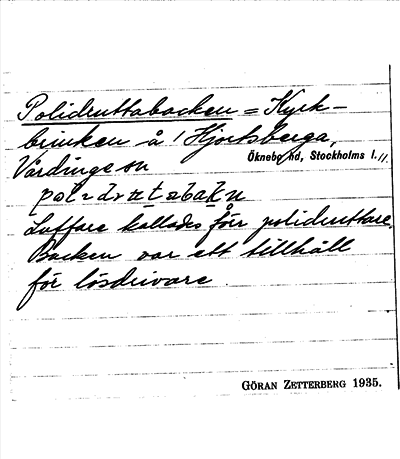 Polidruttabacken = Kyrk-
brinken å / Hjortsberga,
Vårdinge sn Öknebo hd, Stockholms l. //.
Luffare kallades förr polidruttare.
Backen var ett tillhåll
för lösdrivare.
GÖRAN ZETTERBERG 1935.